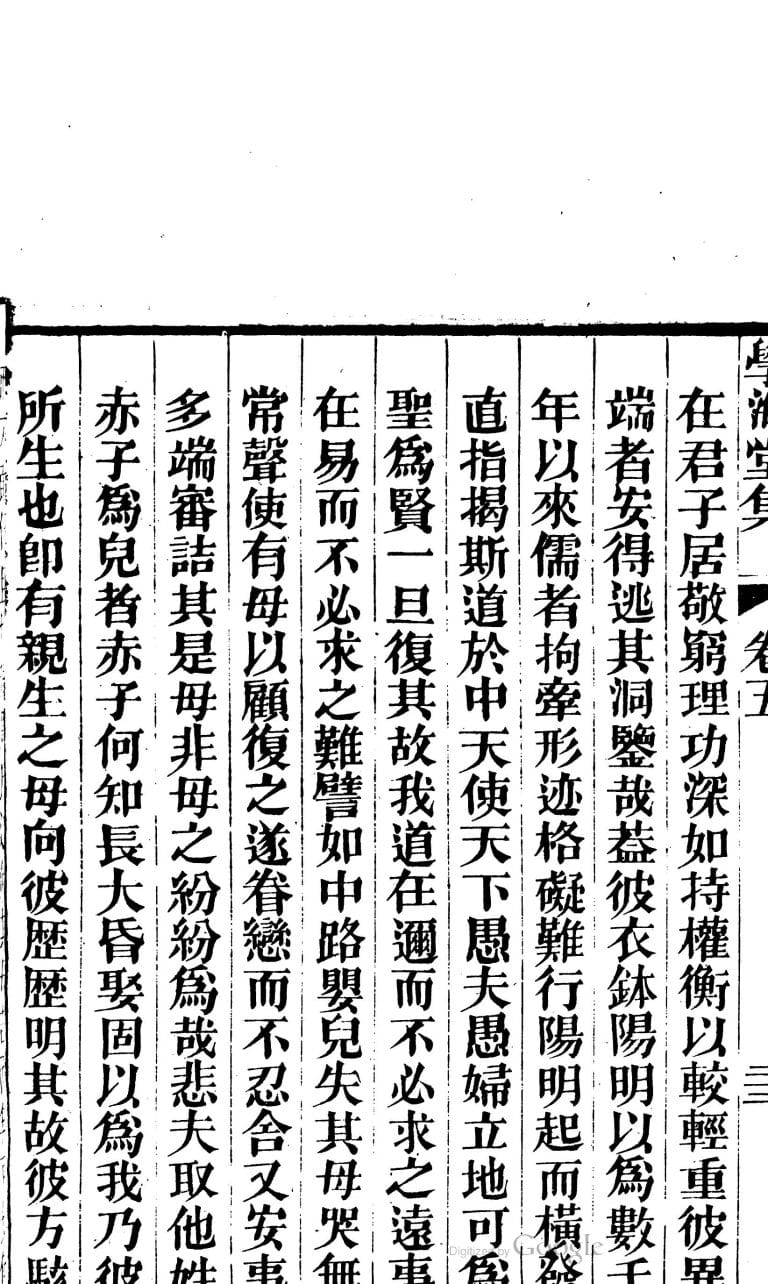 學海堂集 卷五 三
在君子居敬窮理功深如持權衡以較輕重彼異
端者安得逃其洞鑒哉葢彼衣鉢陽明以爲數千
年以來儒者拘牽形迹格礙難行陽明起而橫發
直指揭斯道於中天使天下愚夫愚婦立地可爲
聖爲賢一旦復其故我道在邇而不必求之遠事
在易而不必求之難譬如中路嬰兒失其母哭無
常聲使有母以顧復之遂眷戀而不忍舍又安事
多端審詰其是母非母之紛紛爲哉悲夫取他姓
赤子爲兒者赤子何知長大昏娶固以爲我乃彼
所生也卽有親生之母向彼歴歴明其故彼方駭
Digitized by Google